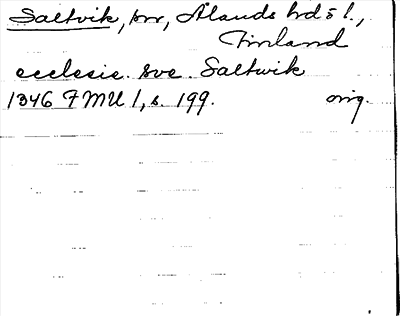 Saltvik, sn, Ålands hd o l.,
Finland
ecclesie. sve. Saltwik
1346 FMU 1, s. 199. orig.